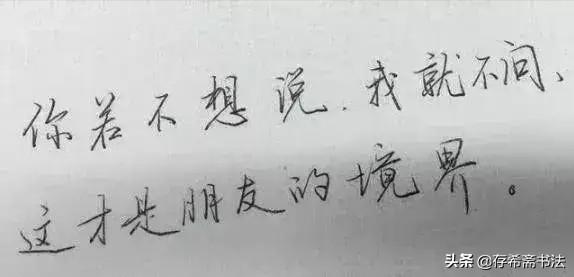 你若不想说.我就不问、
这才是朋友的境界。
头条 @存希斋书法